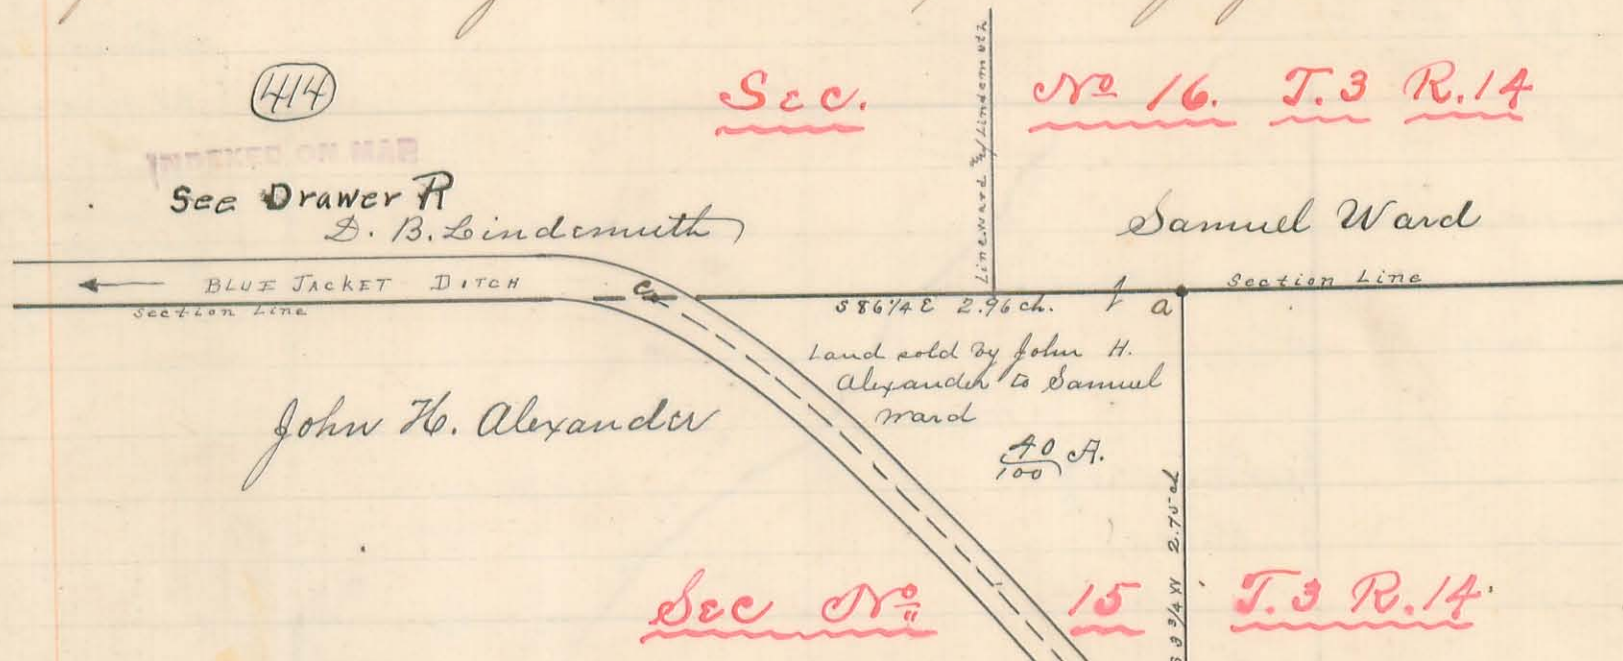 414
Sec. No 16. T.3 R.14
INDEXED ON MAP
See Drawer R
D. B. Lindemuth
Samuel Ward
Line Ward & Lindemuth
BLUE JACKET DITCH
c
Section Line
Section Line
S 86 1/4 E 2.96 ch.
a
Land sold by John H.
Alexander to Samuel
Ward
40/100 A.
John H. Alexander
S 3 3/4 W 2.75 ch
Sec No 15 T.3 R.14